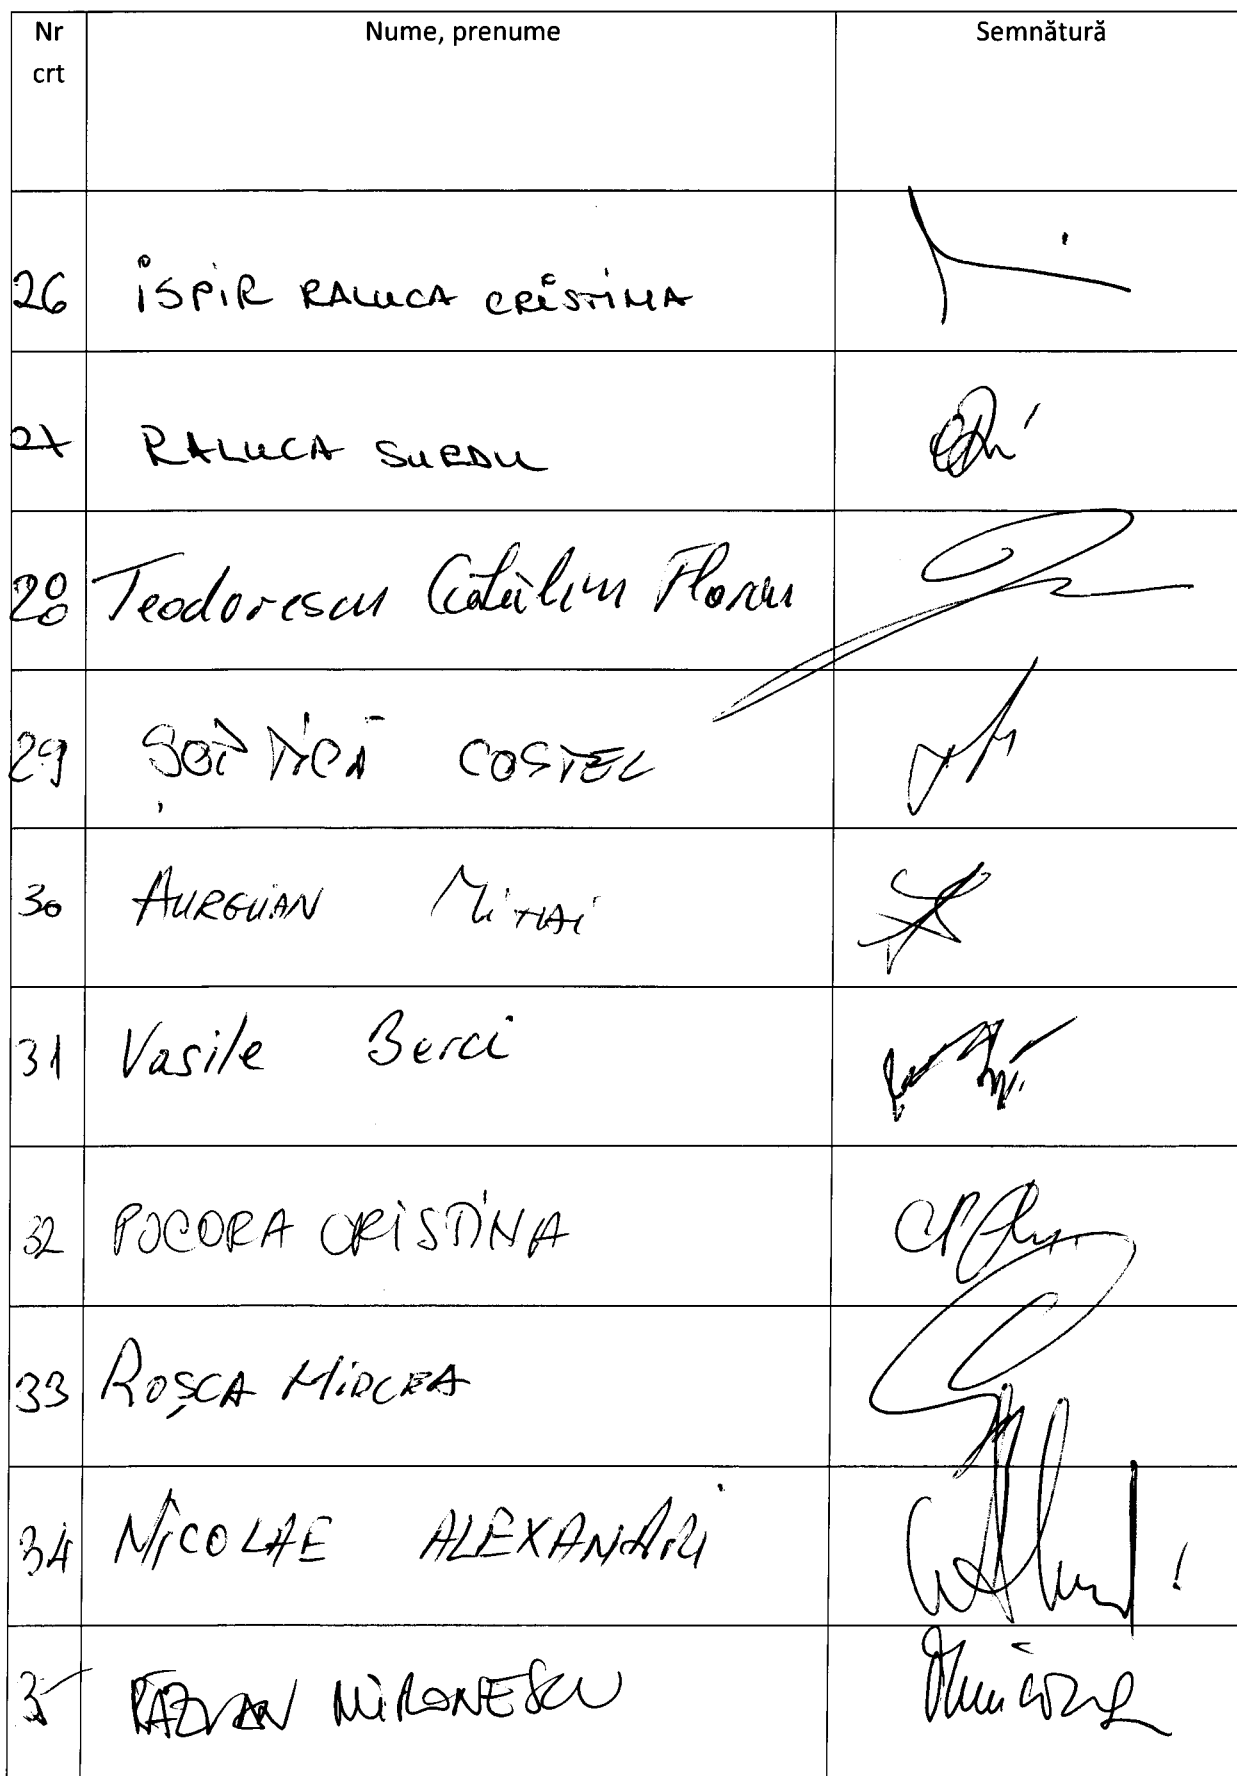 Nr Nume, prenume Semnătură
crt
26 ISPIR RALUCA CRISTINA
27 RALUCA SURDU
28 Teodorescu Cătălin Florin
29 ȘOPTICĂ COSTEL
30 AURELIAN MIHAI
31 Vasile Berci
32 POCORA CRISTINA
33 ROȘCA MIRCEA
34 NICOLAE ALEXANDRU
35 RĂZVAN MIRONESCU